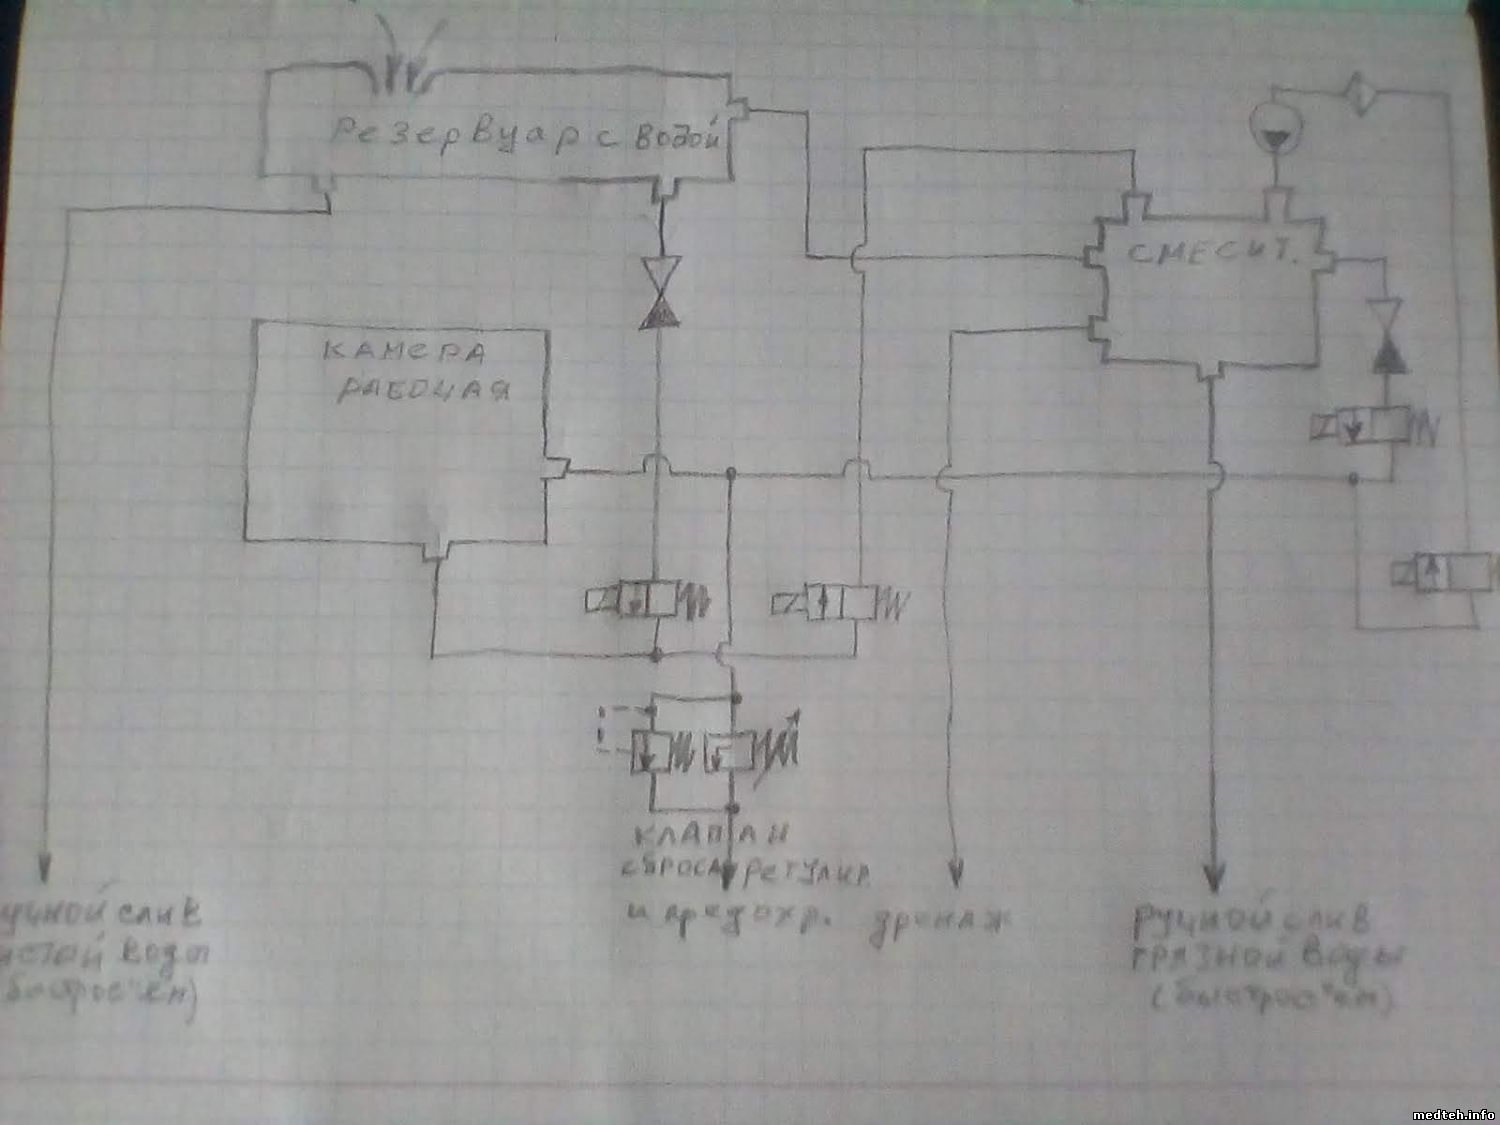 Резервуар с водой
СМЕСИТ.
КАМЕРА
РАБОЧАЯ
КЛАПАН
СБРОСА РЕГУЛИР
и предохр.
дренаж
учной слив
истой воды
быстрос"ем)
Ручной слив
грязной воды
(быстрос"ем)
medteh.info